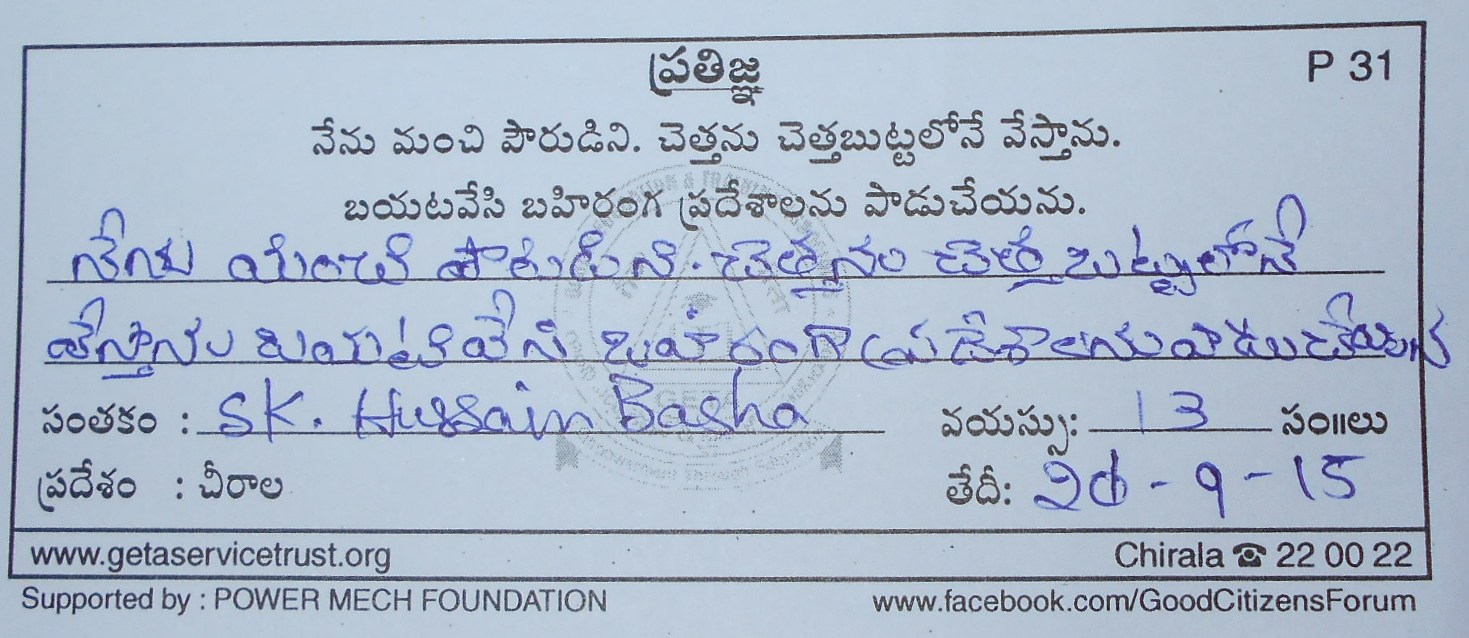 ప్రతిజ్ఞ P 31
నేను మంచి పౌరుడిని. చెత్తను చెత్తబుట్టలోనే వేస్తాను.
బయటవేసి బహిరంగ ప్రదేశాలను పాడుచేయను.
నేను మంచి పౌరుడిని. చెత్తను చెత్త బుట్టలోనే
వేస్తాను బయట వేసి బహిరంగా ప్రదేశాలను పాడు చేయను
సంతకం : SK. Hussain Basha వయస్సు: 13 సం॥లు
ప్రదేశం : చీరాల తేదీ: -9-15
www.getaservicetrust.org Chirala ☎ 22 00 22
Supported by : POWER MECH FOUNDATION www.facebook.com/GoodCitizensForum